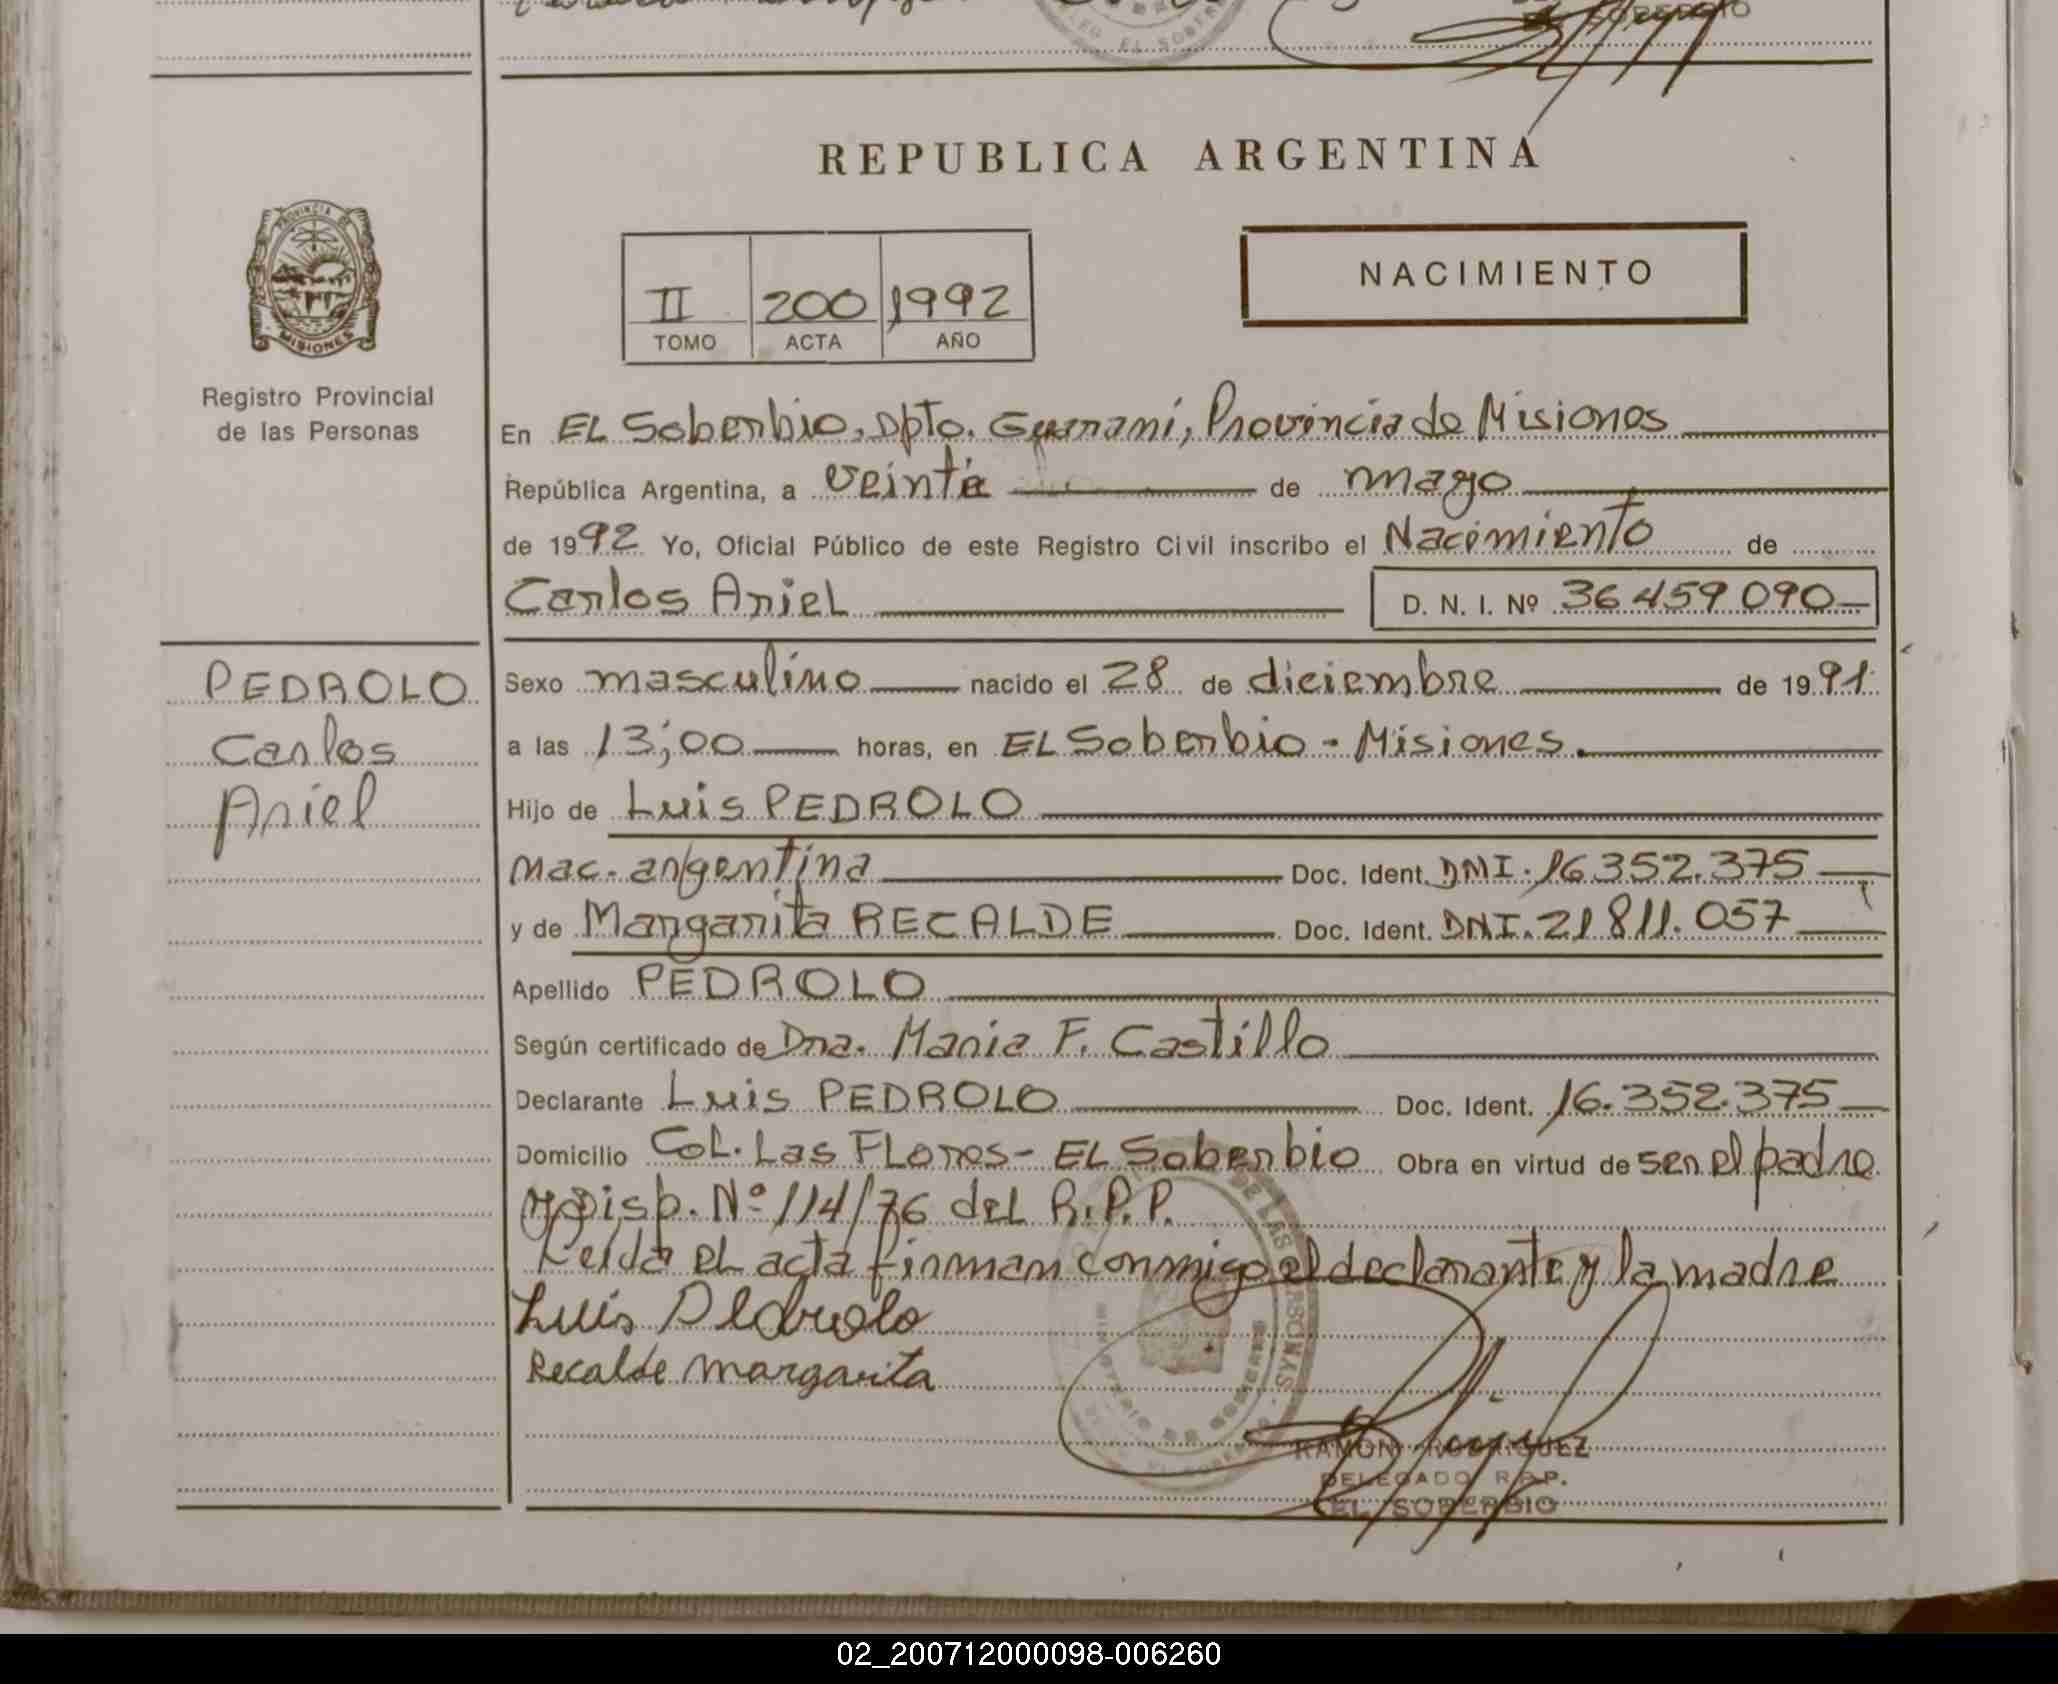 REPUBLICA ARGENTINA
PROVINCIA DE
MISIONES
Registro Provincial
de las Personas
II 200 1992
TOMO ACTA AÑO
NACIMIENTO
En EL Soberbio, Dpto. Guaraní, Provincia de Misiones
República Argentina, a veinte de mayo
de 1992 Yo, Oficial Público de este Registro Civil inscribo el Nacimiento de
Carlos Ariel D. N. I. Nº 36 459 090
PEDROLO
Carlos
Ariel
Sexo masculino nacido el 28 de diciembre de 1991
a las 13;00 horas, en EL Soberbio - Misiones.
Hijo de Luis PEDROLO
nac. argentina Doc. Ident. DNI. 16 352.375
y de Margarita RECALDE Doc. Ident. DNI. 21 811.057
Apellido PEDROLO
Según certificado de Dra. Maria F. Castillo
Declarante Luis PEDROLO Doc. Ident. 16.352.375
Domicilio Col. Las Flores - EL Soberbio Obra en virtud de ser el padre
y Disp. Nº 114/76 del R.P.P.
Leida el acta firman conmigo el declarante y la madre
Luis Pedrolo
Recalde margarita
RAMON RODRIGUEZ
DELEGADO R.P.P.
EL SOBERBIO
02_200712000098-006260